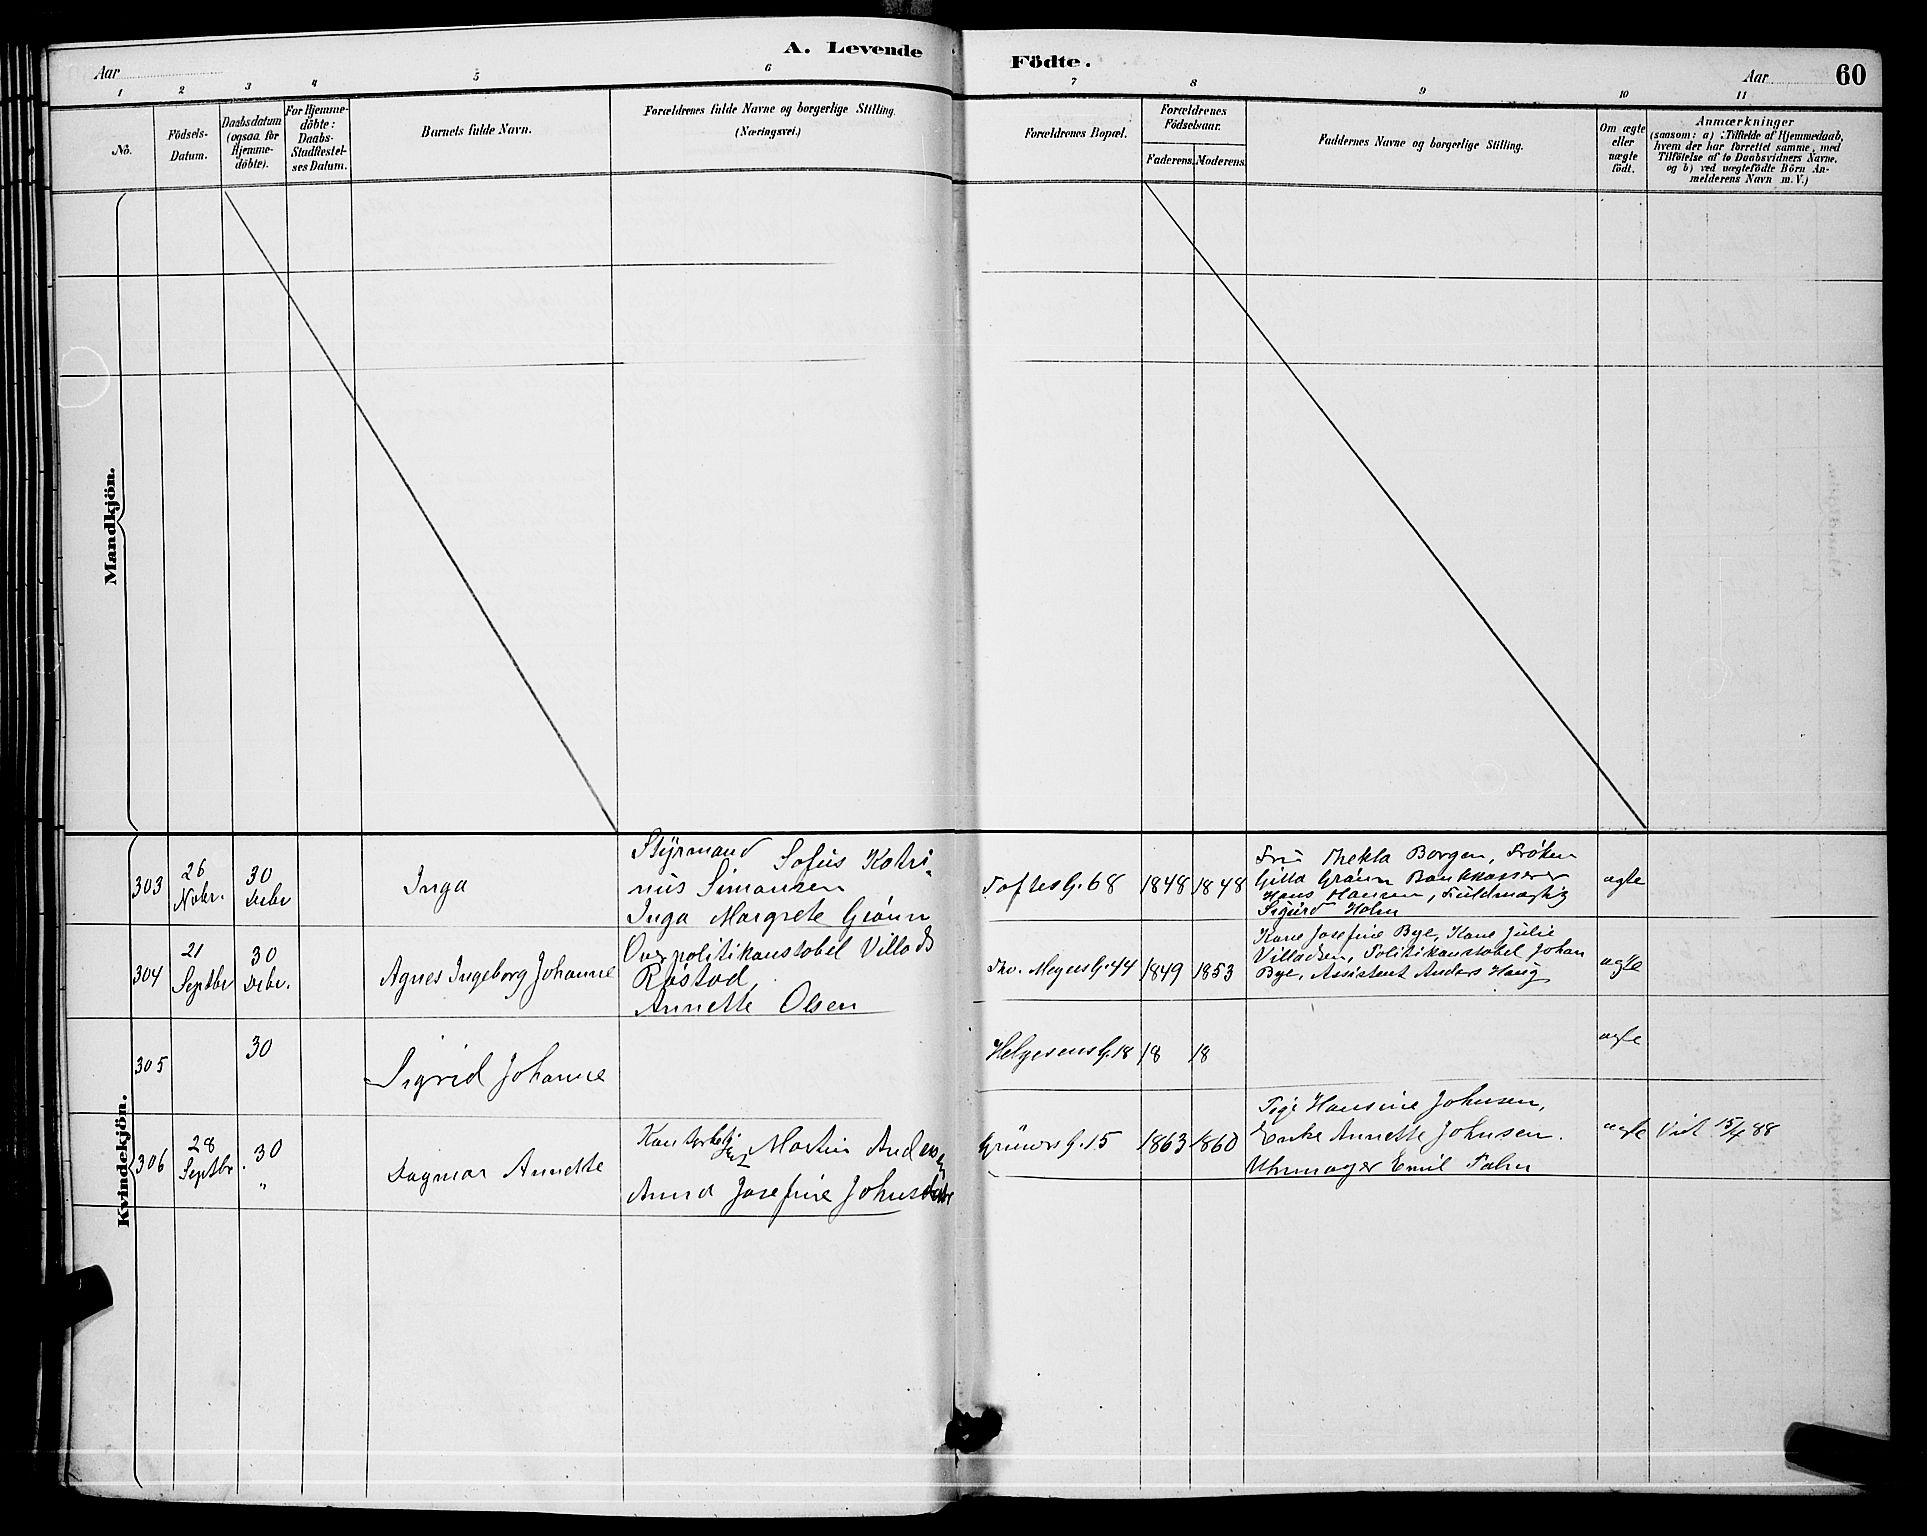 A. Levende Födte.
Aar
Aar
60
1 2 3 4 5 6 7 8 9 10 11
No.
Födsels-
Datum.
Daabsdatum
(ogsaa for
Hjemme-
döbte).
For Hjemme-
döbte:
Daabs-
Stadfestel-
ses Datum.
Barnets fulde Navn.
Forældrenes fulde Navne og borgerlige Stilling
(Næringsvei.)
Forældrenes Bopæl.
Forældrenes
Födselsaar.
Faderens. Moderens.
Faddernes Navne og borgerlige Stilling.
Om ægte
eller
uægte
födt.
Anmærkninger
(saasom: a) Tilfælde af Hjemmedaab,
hvem der har forrettet samme, med
Tilföielse af to Daabsvidners Navne,
og b) ved uægtefödte Börn An-
melderens Navn m. V.)
Mandkjön.
Kvindekjön.
303
26
Novbr.
30
Decbr
Inga
Styrmand Sofus Katri-
nus Simonsen
Inga Margrete Grönn
Toftes G. 68
1848 1848
Fru Thekla Borgen, Fröken
Gilla Grönn Bankkasserer
Hans Hansen, Fuldmægtig
Sigurd Holm
ægte
304
21
Septbr
30
Decbr.
Agnes Ingeborg Johanne
Overpolitikonstobel Villads
Röstad,
Annette Olsen
Thv. Meyers G. 44
1849 1853
Kone Josefine Bye, Kone Julie
Villadsen, Politikonstobel Johan
Bye, Assistent Anders Haug
ægte
305
30
Sigrid Johanne
Helgesens G. 18
18 18
ægte
306
28
Septbr.
30
"
Dagmar Annette
Martin Andersen
Anna Josefine Johnsdatter
Grüners G. 15
1863 1860
Pige Hansine Johnsen,
Enke Annette Johnsen.
Uhrmager Emil Palm
ægte
15/4 88